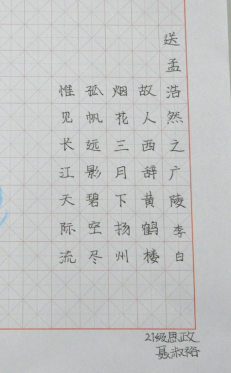 送孟浩然之广陵 李白
故人西辞黄鹤楼
烟花三月下扬州
孤帆远影碧空尽
惟见长江天际流
21级思政
聂淑